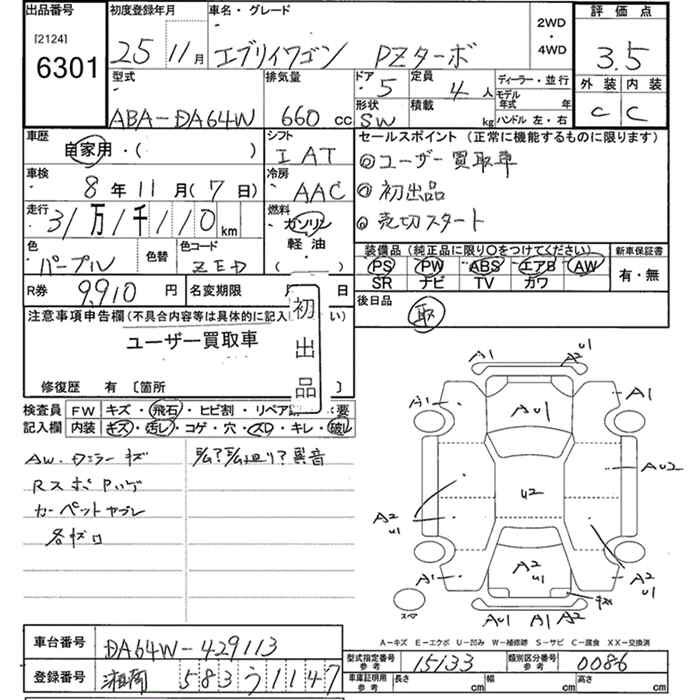 出品番号 初度登録年月 車名・グレード 2WD・4WD 評価点
[2124]
6301 25 11月 エブリイワゴン PZターボ 3.5
型式 排気量 ドア 5 定員 4人 ディーラー・並行 外装 内装
モデル年式 年
ABA-DA64W 660cc 形状 SW 積載 kg ハンドル 左・右 C C
車歴 シフト セールスポイント (正常に機能するものに限ります)
自家用・( ) IAT ユーザー買取車
車検 冷房
8年11月(7日) AAC 初出品
走行 燃料
31万1千110km ガソリン 売切スタート
軽油
色 色替 色コード ( ) 装備品 (純正品に限り○をつけてください) 新車保証書
パープル ZED PS PW ABS エアB AW 有・無
R券 9,910円 名変期限 日 SR ナビ TV カワ
注意事項申告欄(不具合内容等は具体的に記入 い) 初出品 後日品 取
ユーザー買取車
修復歴 有 〔箇所
検査員 FW キズ・飛石・ヒビ割・リペア 要
記入欄 内装 キズ・汚レ・コゲ・穴・スレ・キレ・破レ
AW. キズ 異音
Rスポ
カーペットヤブレ
各キロ
A1 A2 U1
A1 AU1 A1
AU2
U2
A2 U1
A1 A2 U1 A2 U1
AU1 A1 A2
A-キズ E-エクボ U-凹み W-補修跡 S-サビ C-腐食 XX-交換済
車台番号 DA64W-429113 型式指定番号 参考 15133 類別区分番号 参考 0086
登録番号 湘南 583 う 1147 車庫証明用 参考 長さ cm 幅 cm 高さ cm